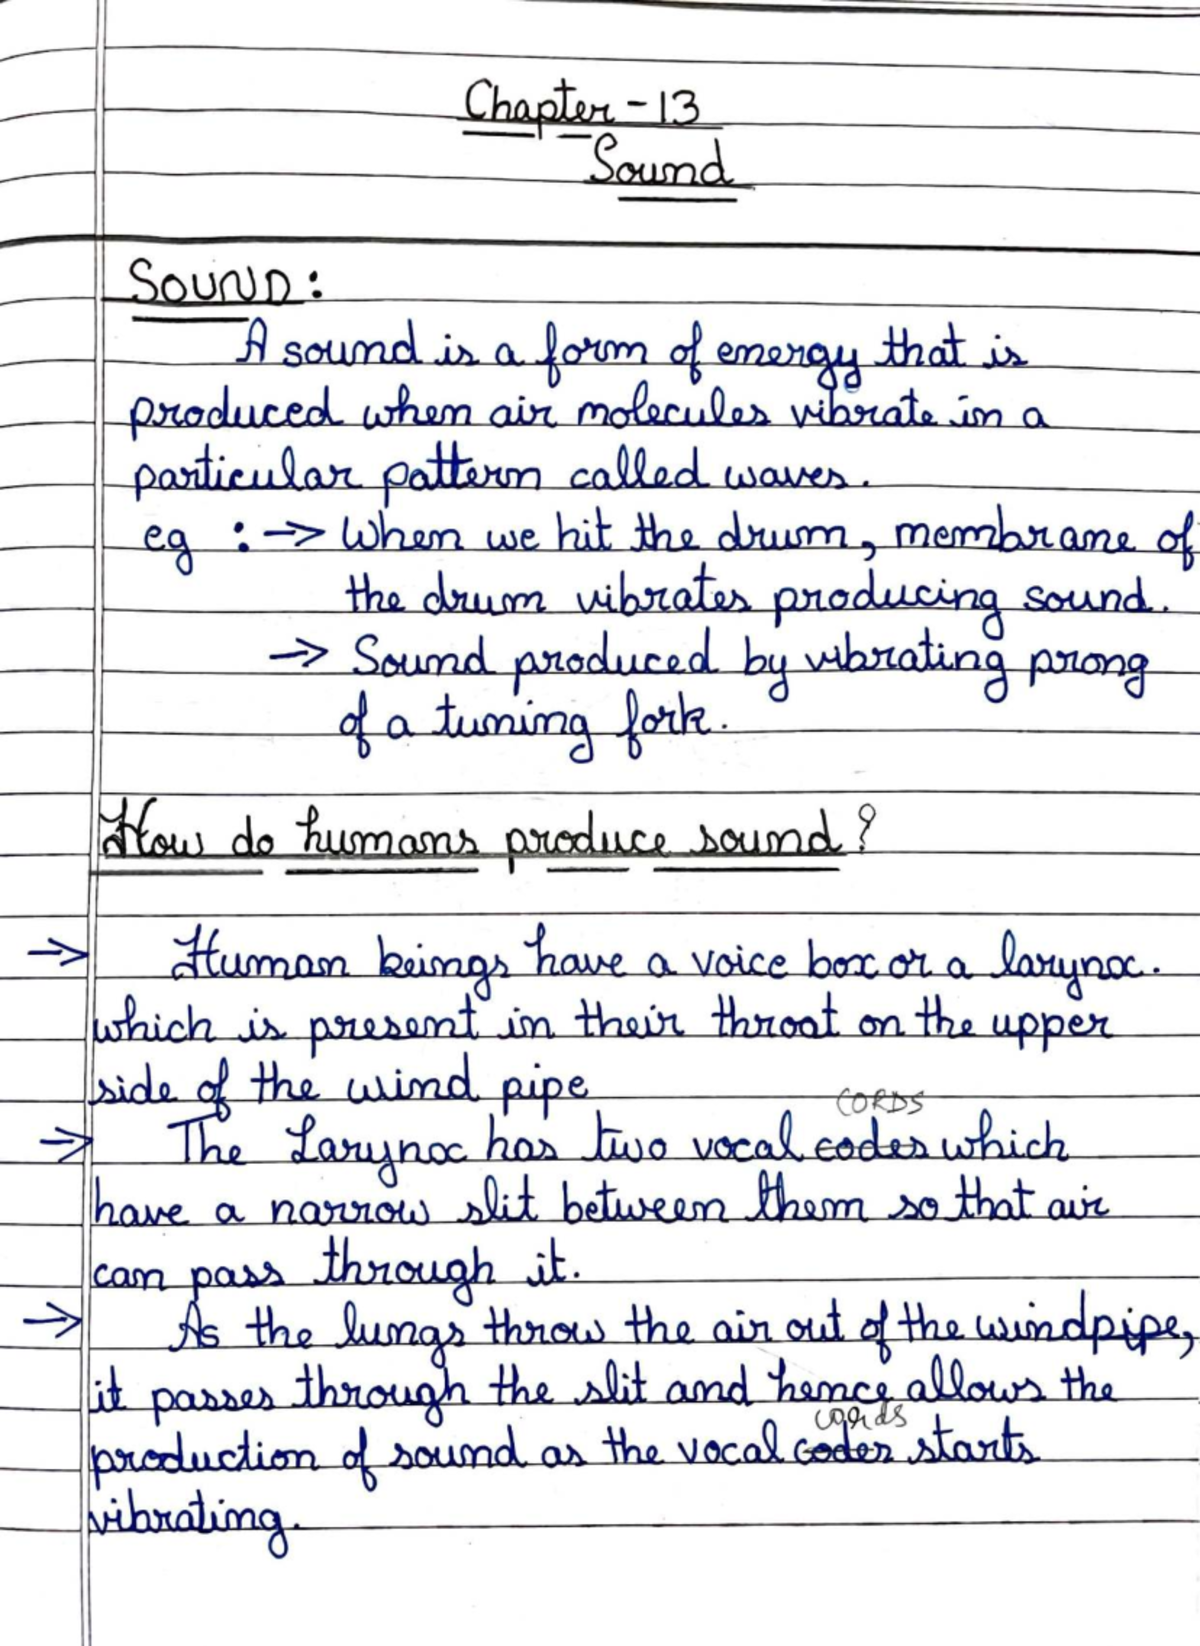 Chapter - 13
Sound
SOUND :
A sound is a form of energy that is
produced when air molecules vibrate in a
particular pattern called waves.
eg : → When we hit the drum, membrane of
the drum vibrates producing sound.
→ Sound produced by vibrating prong
of a tuning fork.
How do humans produce sound?
→ Human beings have a voice box or a larynx.
which is present in their throat on the upper
side of the wind pipe
CORDS
→ The Larynx has two vocal codes which
have a narrow slit between them so that air
can pass through it.
→ As the lungs throw the air out of the windpipe,
it passes through the slit and hence allows the
cords
production of sound as the vocal codes starts
vibrating.